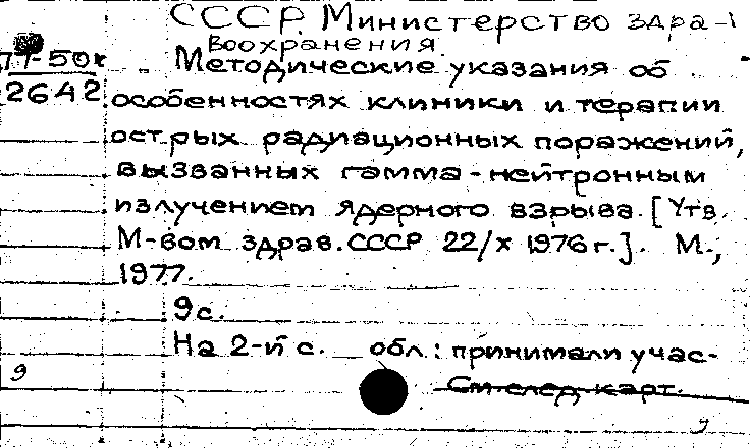 СССР. Министерство здра-
воохранения.
77-50к
Методические указания об
2642
особенностях клиники и терапии
острых радиационных поражений,
вызванных гамма-нейтронным
излучением ядерного взрыва. [Утв.
М-вом здрав. СССР 22/X 1976 г.]. М.,
1977.
9 с.
На 2-й с. обл: принимали учас-
9
См след. карт.
9